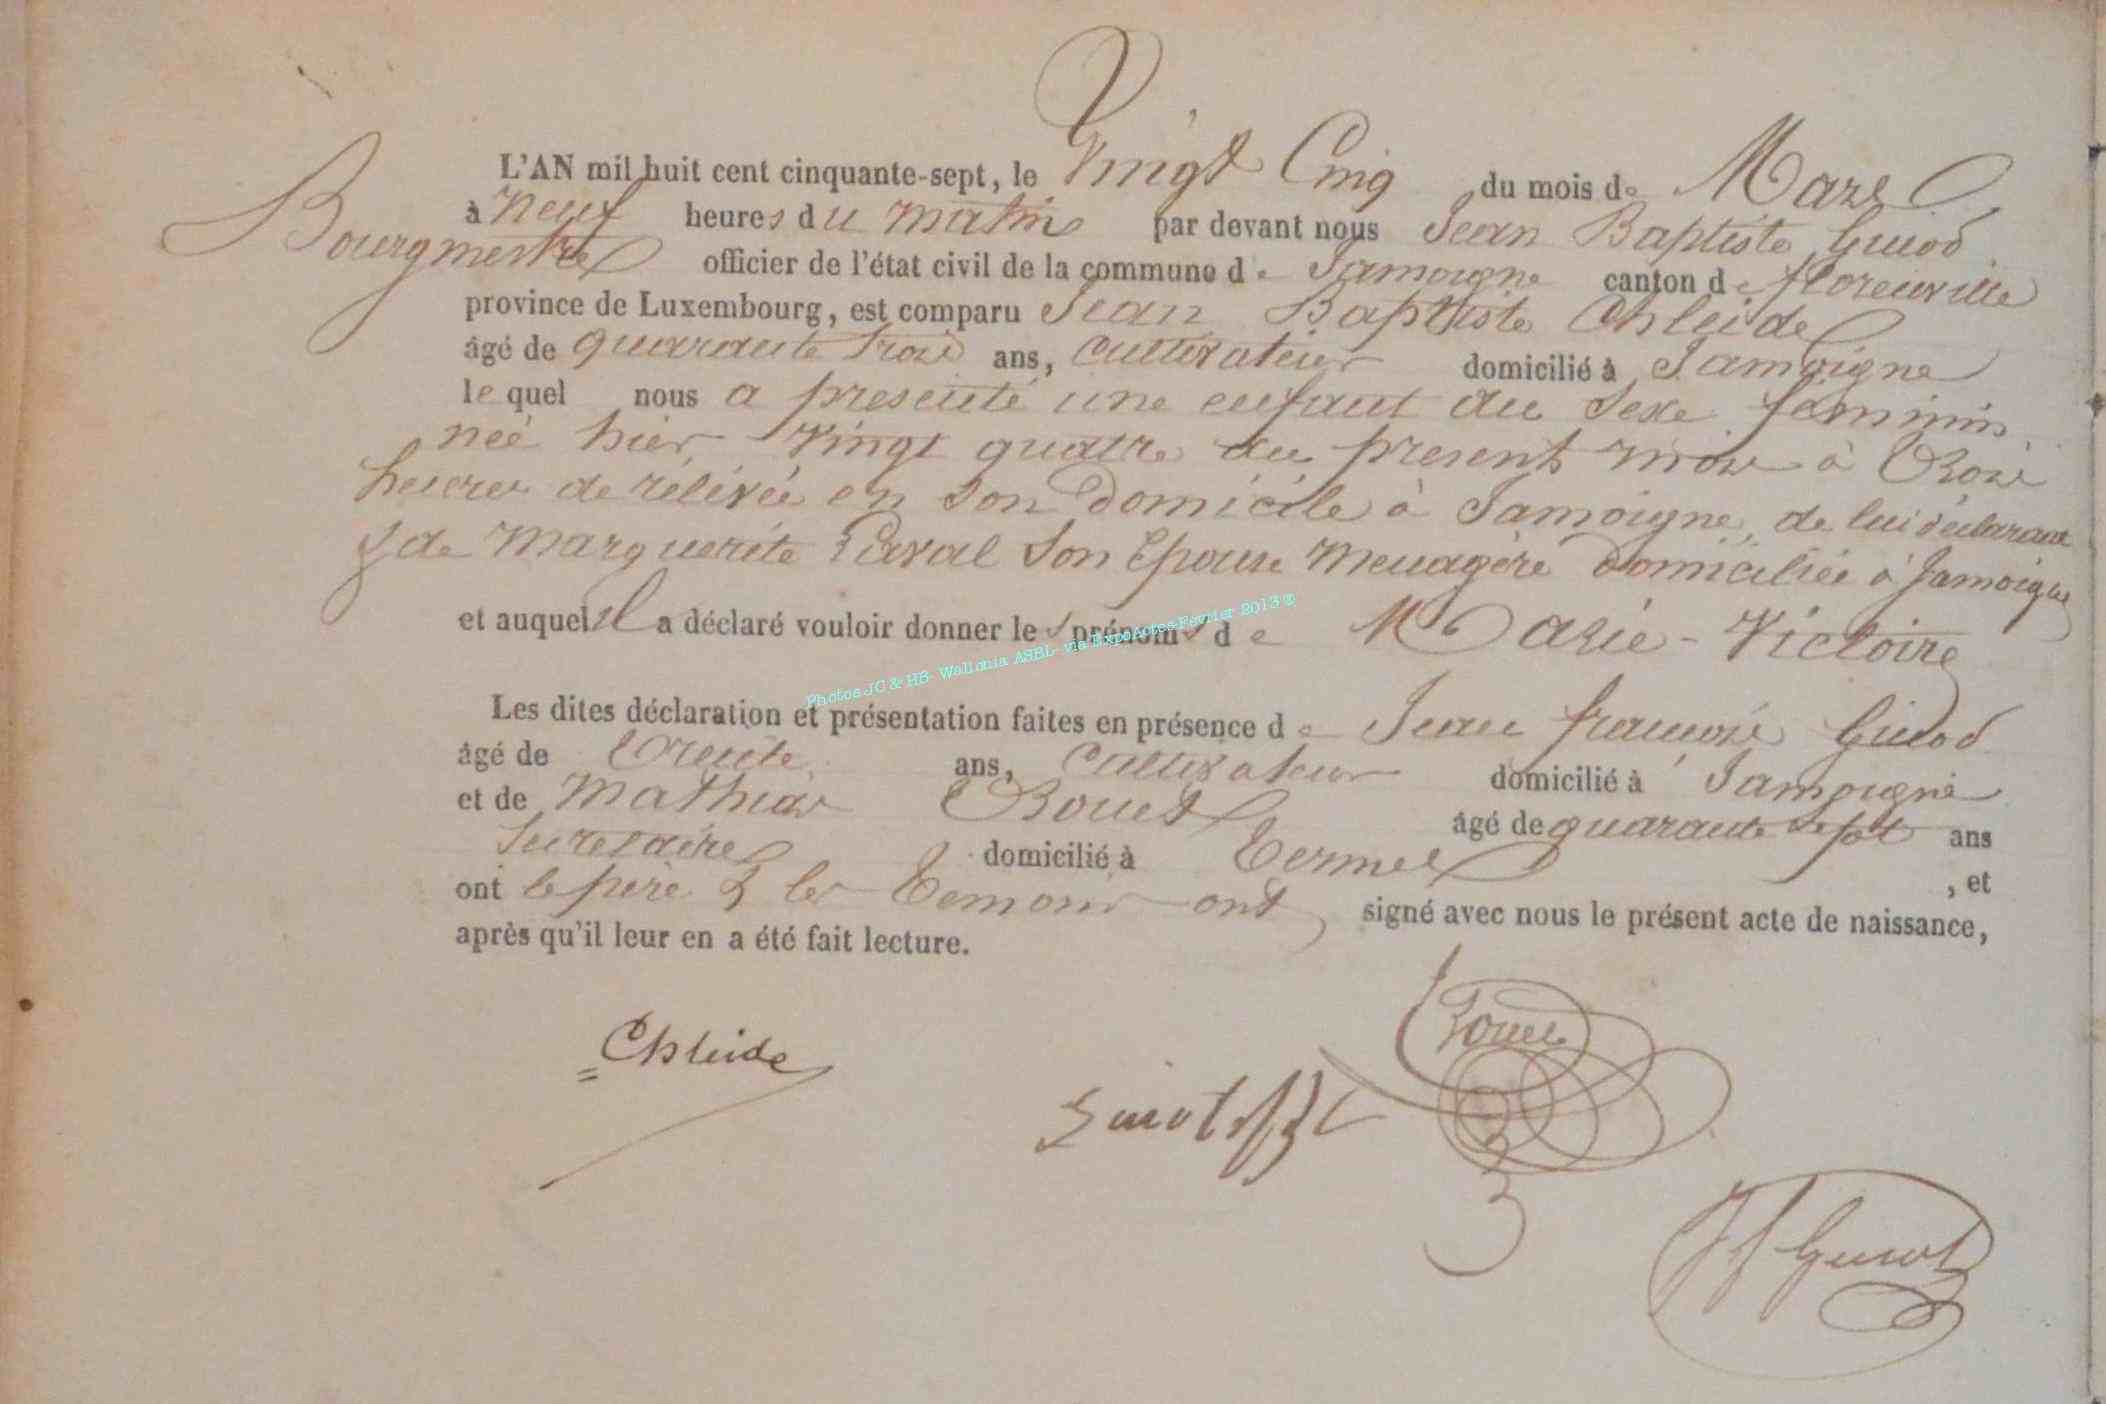 L'AN mil huit cent cinquante-sept, le Vingt Cinq du mois de Mars
à neuf heures du matin par devant nous Jean Baptiste Guiot
Bourgmestre officier de l'état civil de la commune de Jamoigne canton de florenville
province de Luxembourg, est comparu Jean Baptiste Chleide
âgé de quarante trois ans, cultivateur domicilié à Jamoigne
le quel nous a presenté une enfant du Sexe feminin
neé hier vingt quatre du present mois à trois
heures de rélévée en Son domicile à Jamoigne, de lui déclarant
& de Marguerite Laval Son Epouse Menagère domiciliée à Jamoigne
et auquel il a déclaré vouloir donner les prénoms de Marie-Victoire
Photos JC & HB- Wallonia ASBL- via ExpoActes-Fevrier 2013 ®
Les dites déclaration et présentation faites en présence de Jean françois Guiot
âgé de trente ans, Cultivateur domicilié à Jamoigne
et de Mathias Rouet âgé de quarante sept ans
Secretaire domicilié à Termes , et
ont le père & les temoins ont signé avec nous le présent acte de naissance,
après qu'il leur en a été fait lecture.
Chleide
Rouet
Guiot
JJ Guiot